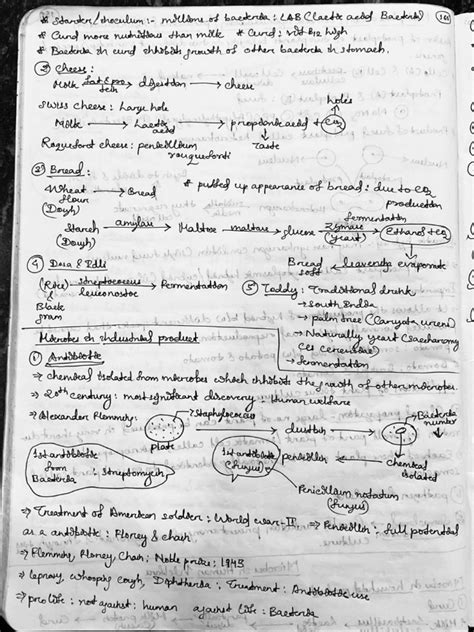 * Starter/inoculum :- millions of bacteria : LAB (lactic acid Bacteria)
* Curd more nutritious than milk * Curd : vit B12 high
* Bacteria in curd inhibits growth of other bacteria in stomach.
② Cheese :
Milk → digestion → cheese
Swiss cheese : Large hole
holes
Milk → Lactic acid → propionic acid + CO2
Taste
Roquefort cheese : penicillium
rouqueforti
③ Bread :
Wheat flour → Bread * puffed up appearance of bread : due to CO2
(Dough) production
fermentation
Starch amylase → Maltose → maltase → glucose Zymase → Ethanol + CO2
(Dough) (yeast)
Bread soft ← leavening evaporate
④ Dosa & Idli
(Rice) Streptococcus → Fermentation
+ leuconostoc
Black
gram
⑤ Toddy : Traditional drink
→ South India
→ palm tree (Caryota urens)
→ Naturally yeast (Saccharomy
ces cerevisiae)
→ fermentation
Microbes in industrial product
① Antibiotic
⇒ chemical isolated from microbes which inhibits the growth of other microbes.
⇒ 20th century : most significant discovery : Human welfare
⇒ Alexander Flemming : Staphylococcus
Bacteria
number ↓
Plate
1st antibiotic
from
Bacteria : Streptomycin
1st antibiotic
(fungus)
penicillin
chemical
isolated
Penicillium notatum
(fungus)
⇒ Treatment of American soldier : World war-II ⇒ Penicillin : full potential
as a antibiotic : Florey & chain
⇒ Flemming, Florey, Chain : Noble prize : 1945
⇒ leprosy, whooping cough, Diphtheria : Treatment : Antibiotic use
⇒ pro life : not against : human against life : Bacteria